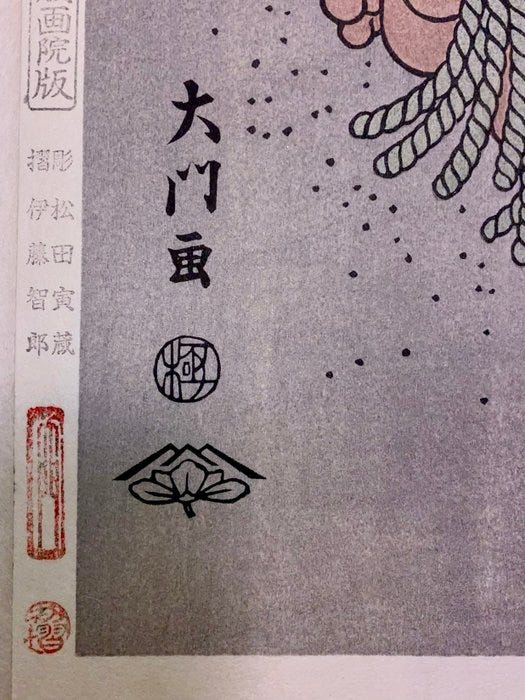 画院版
彫 松田寅蔵
摺 伊藤智郎
大門画
極